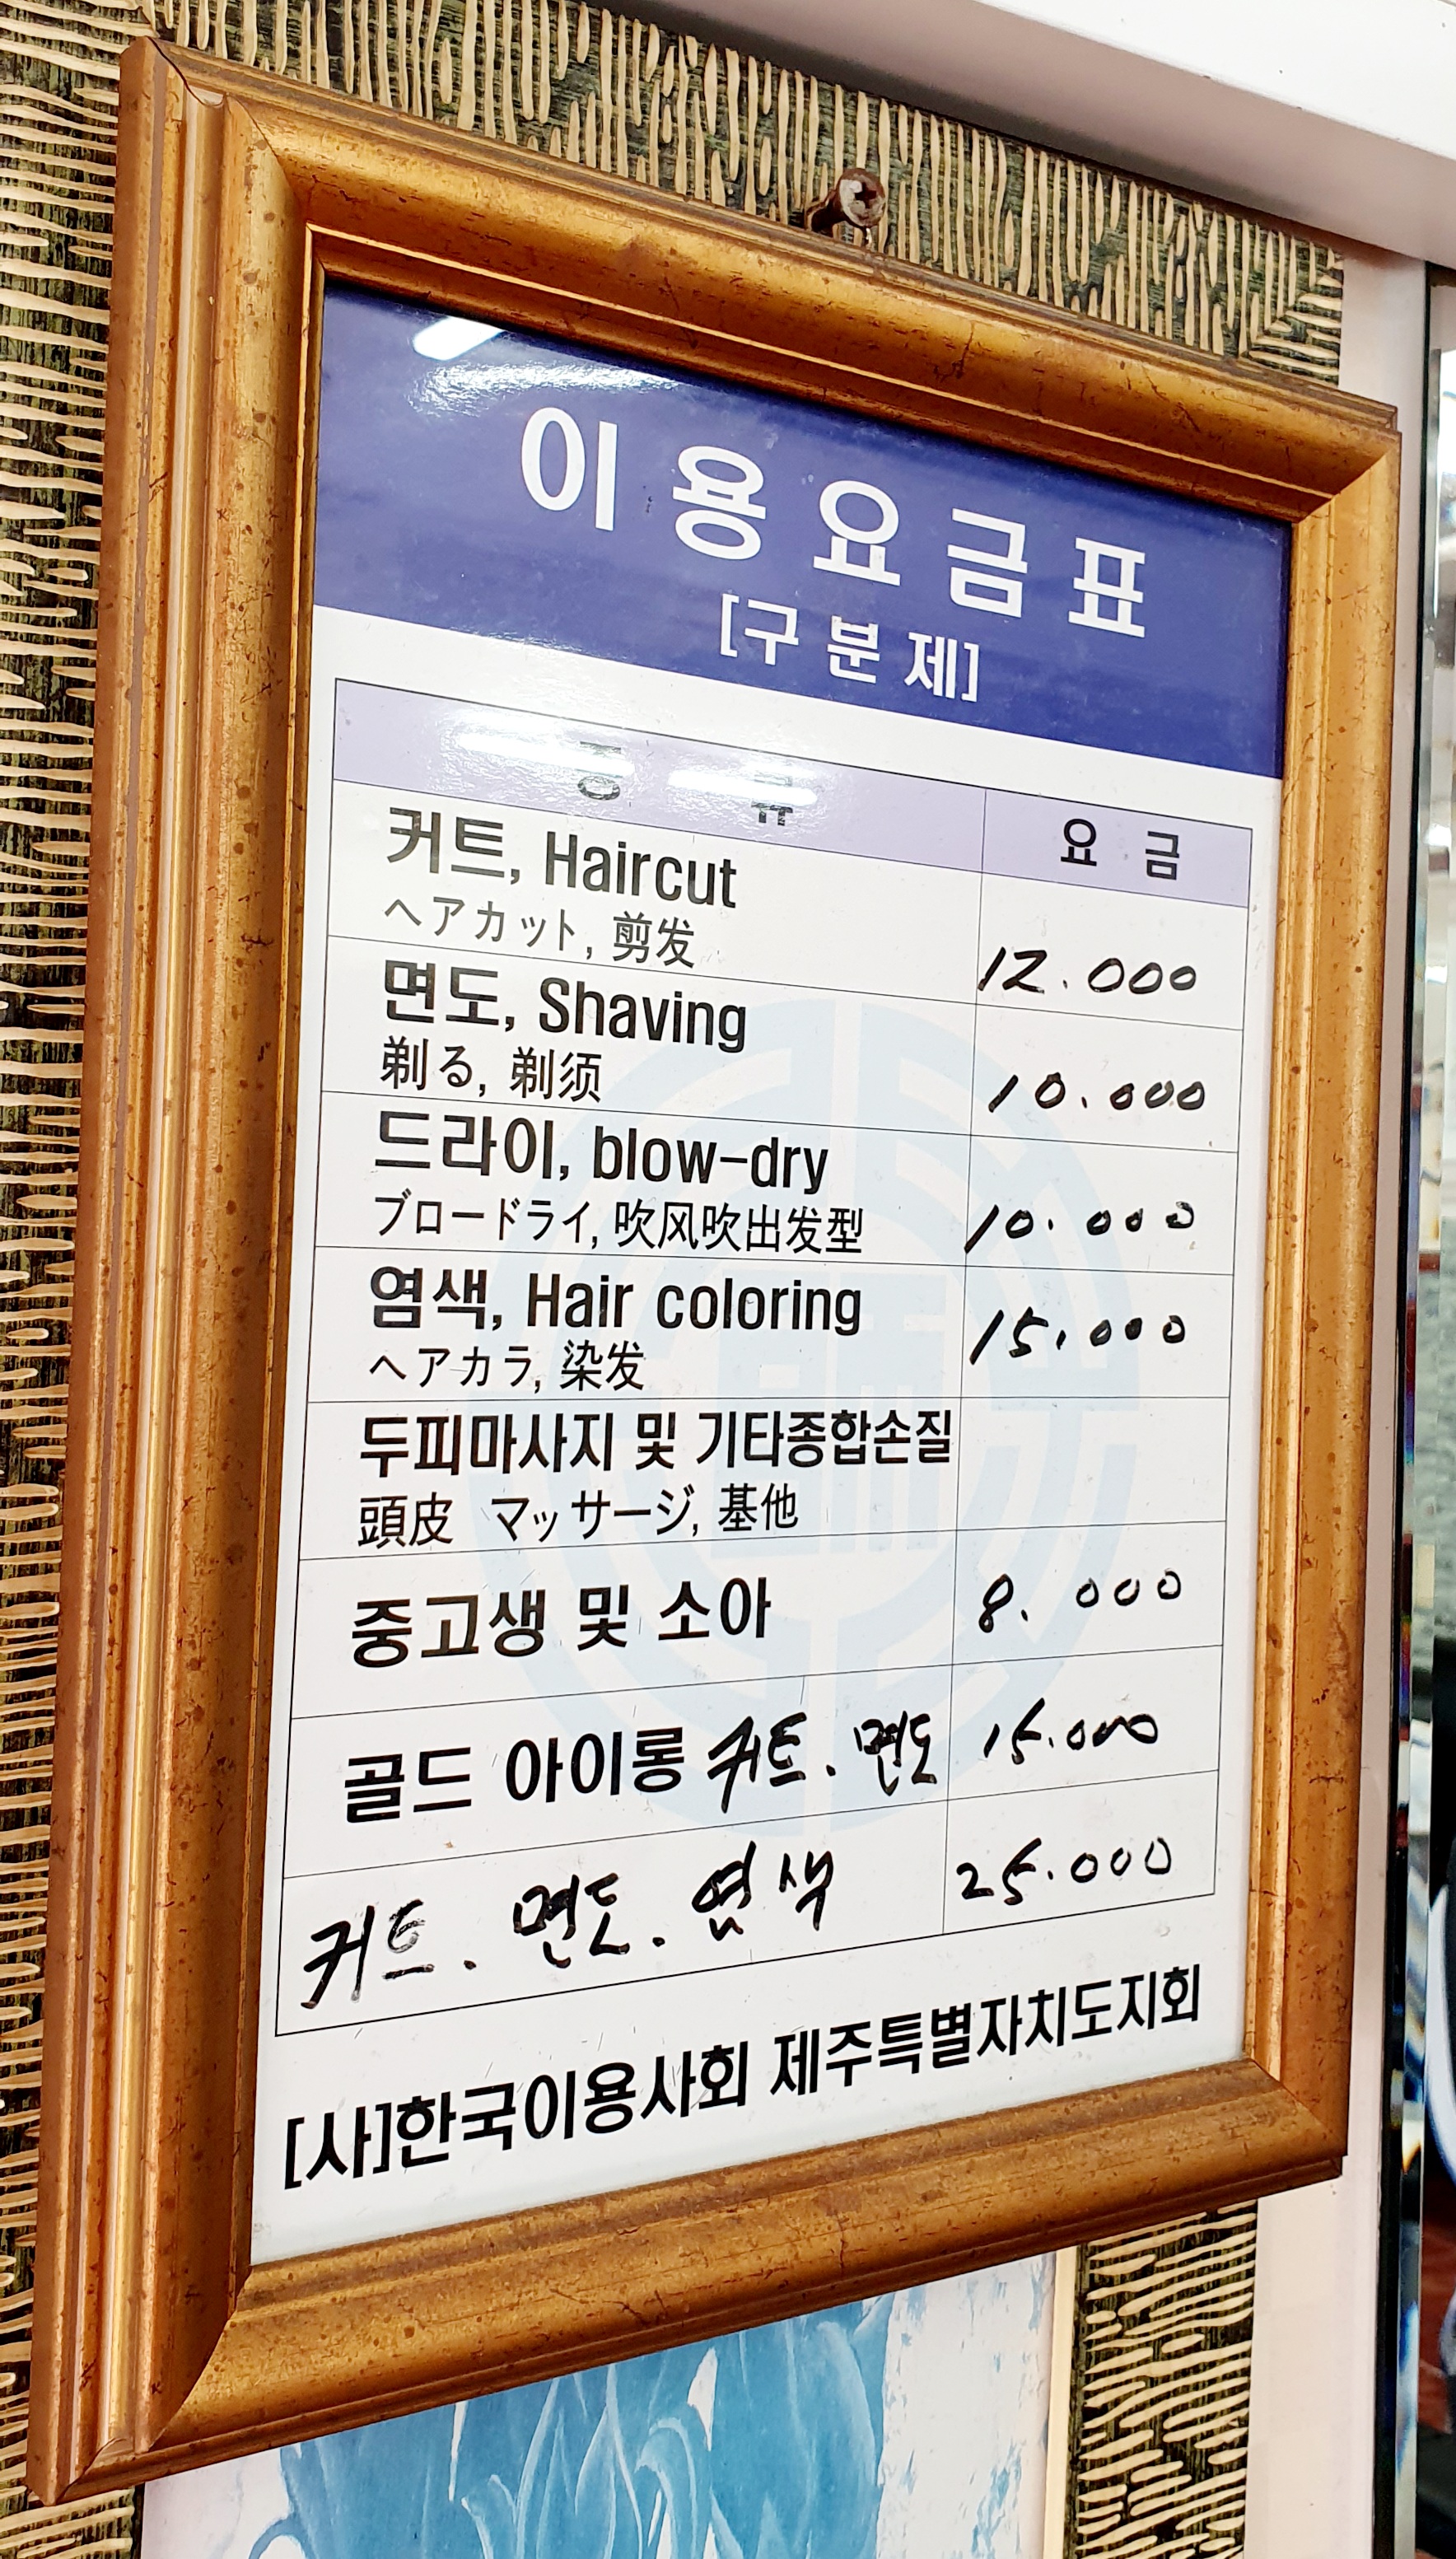 이용요금표
[구분제]
종 류 요 금
커트, Haircut
ヘアカット, 剪发
12.000
면도, Shaving
剃る, 剃须
10.000
드라이, blow-dry
ブロードライ, 吹风吹出发型
10.000
염색, Hair coloring
ヘアカラ, 染发
15.000
두피마사지 및 기타종합손질
頭皮 マッサージ, 基他
중고생 및 소아 8.000
골드 아이롱 커트. 면도 15.000
커트. 면도. 염색 25.000
[사]한국이용사회 제주특별자치도지회